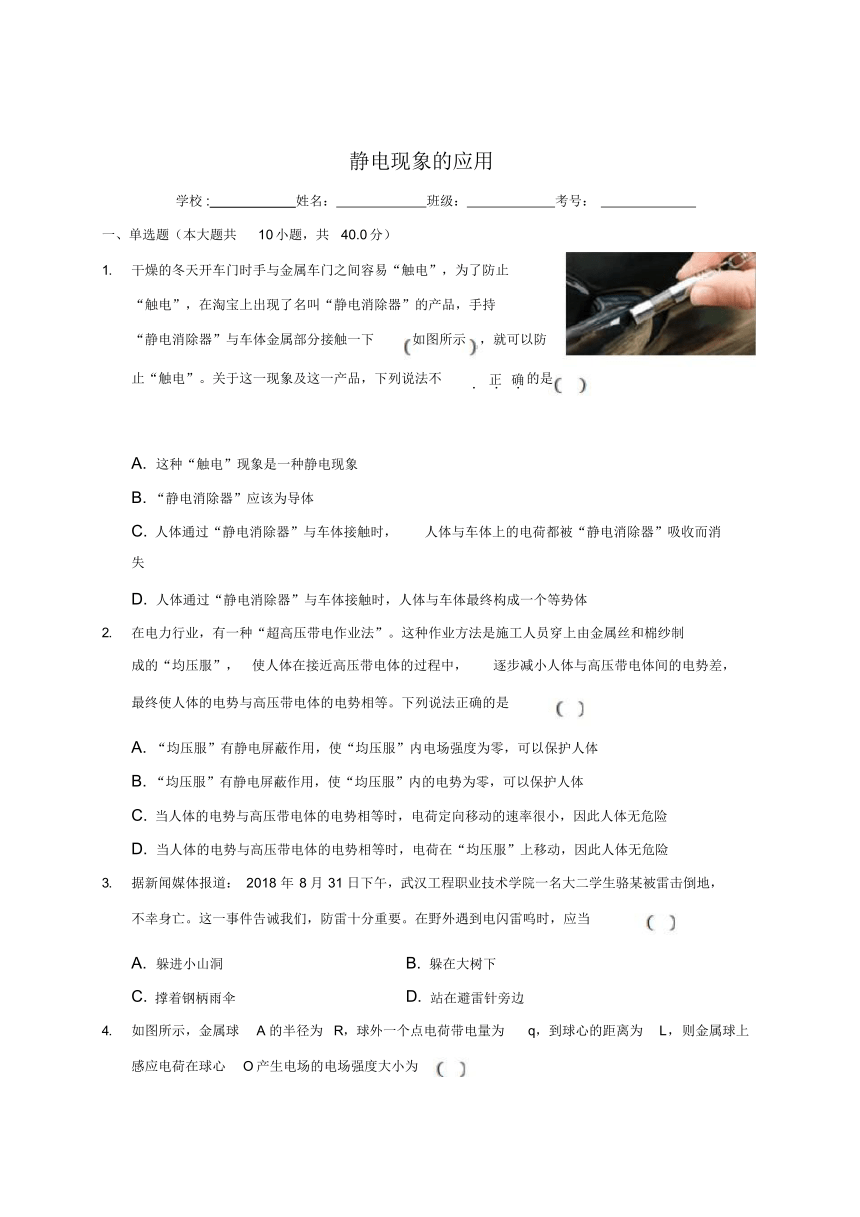 静电现象的应用
学校:___________姓名:___________班级:___________考号:___________
一、单选题（本大题共 10小题，共 40.0分）
1. 干燥的冬天开车门时手与金属车门之间容易“触电”，为了防止
“触电”，在淘宝上出现了名叫“静电消除器”的产品，手持
“静电消除器”与车体金属部分接触一下(如图所示)，就可以防
止“触电”。关于这一现象及这一产品，下列说法不正确的是( )
A. 这种“触电”现象是一种静电现象
B. “静电消除器”应该为导体
C. 人体通过“静电消除器”与车体接触时，人体与车体上的电荷都被“静电消除器”吸收而消
失
D. 人体通过“静电消除器”与车体接触时，人体与车体最终构成一个等势体
2. 在电力行业，有一种“超高压带电作业法”。这种作业方法是施工人员穿上由金属丝和棉纱制
成的“均压服”，使人体在接近高压带电体的过程中，逐步减小人体与高压带电体间的电势差，
最终使人体的电势与高压带电体的电势相等。下列说法正确的是( )
A. “均压服”有静电屏蔽作用，使“均压服”内电场强度为零，可以保护人体
B. “均压服”有静电屏蔽作用，使“均压服”内的电势为零，可以保护人体
C. 当人体的电势与高压带电体的电势相等时，电荷定向移动的速率很小，因此人体无危险
D. 当人体的电势与高压带电体的电势相等时，电荷在“均压服”上移动，因此人体无危险
3. 据新闻媒体报道：2018 年 8 月 31 日下午，武汉工程职业技术学院一名大二学生骆某被雷击倒地，
不幸身亡。这一事件告诫我们，防雷十分重要。在野外遇到电闪雷鸣时，应当( )
A. 躲进小山洞 B. 躲在大树下
C. 撑着钢柄雨伞 D. 站在避雷针旁边
4. 如图所示，金属球 A 的半径为 R，球外一个点电荷带电量为 q，到球心的距离为 L，则金属球上
感应电荷在球心 O产生电场的电场强度大小为( )